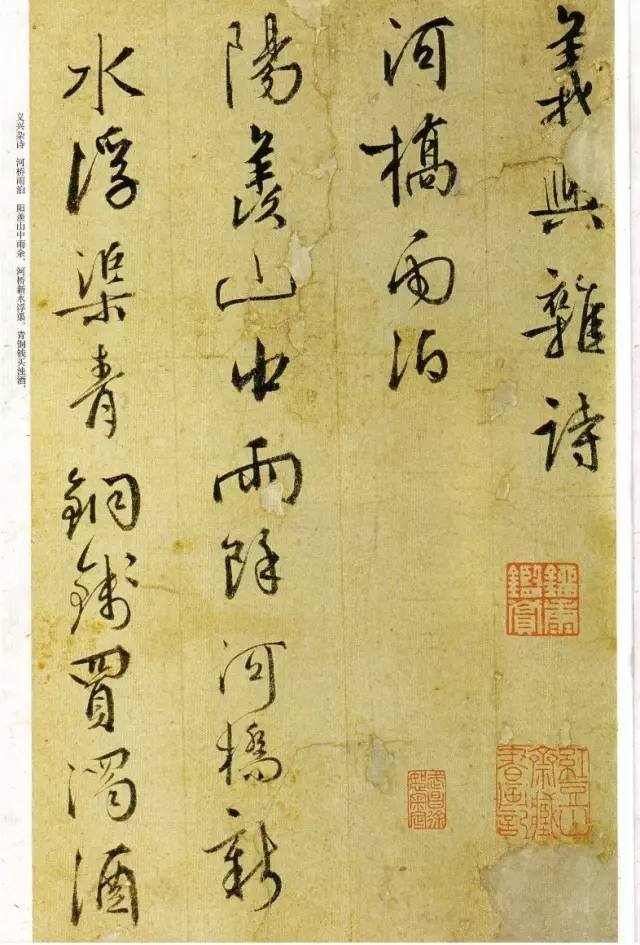 義興雜詩
河橋雨泊
陽羨山中雨餘河橋新
水浮渠青銅錢買濁酒
义兴杂诗　河桥雨泊　阳羡山中雨余，河桥新水浮渠。青铜钱买浊酒，